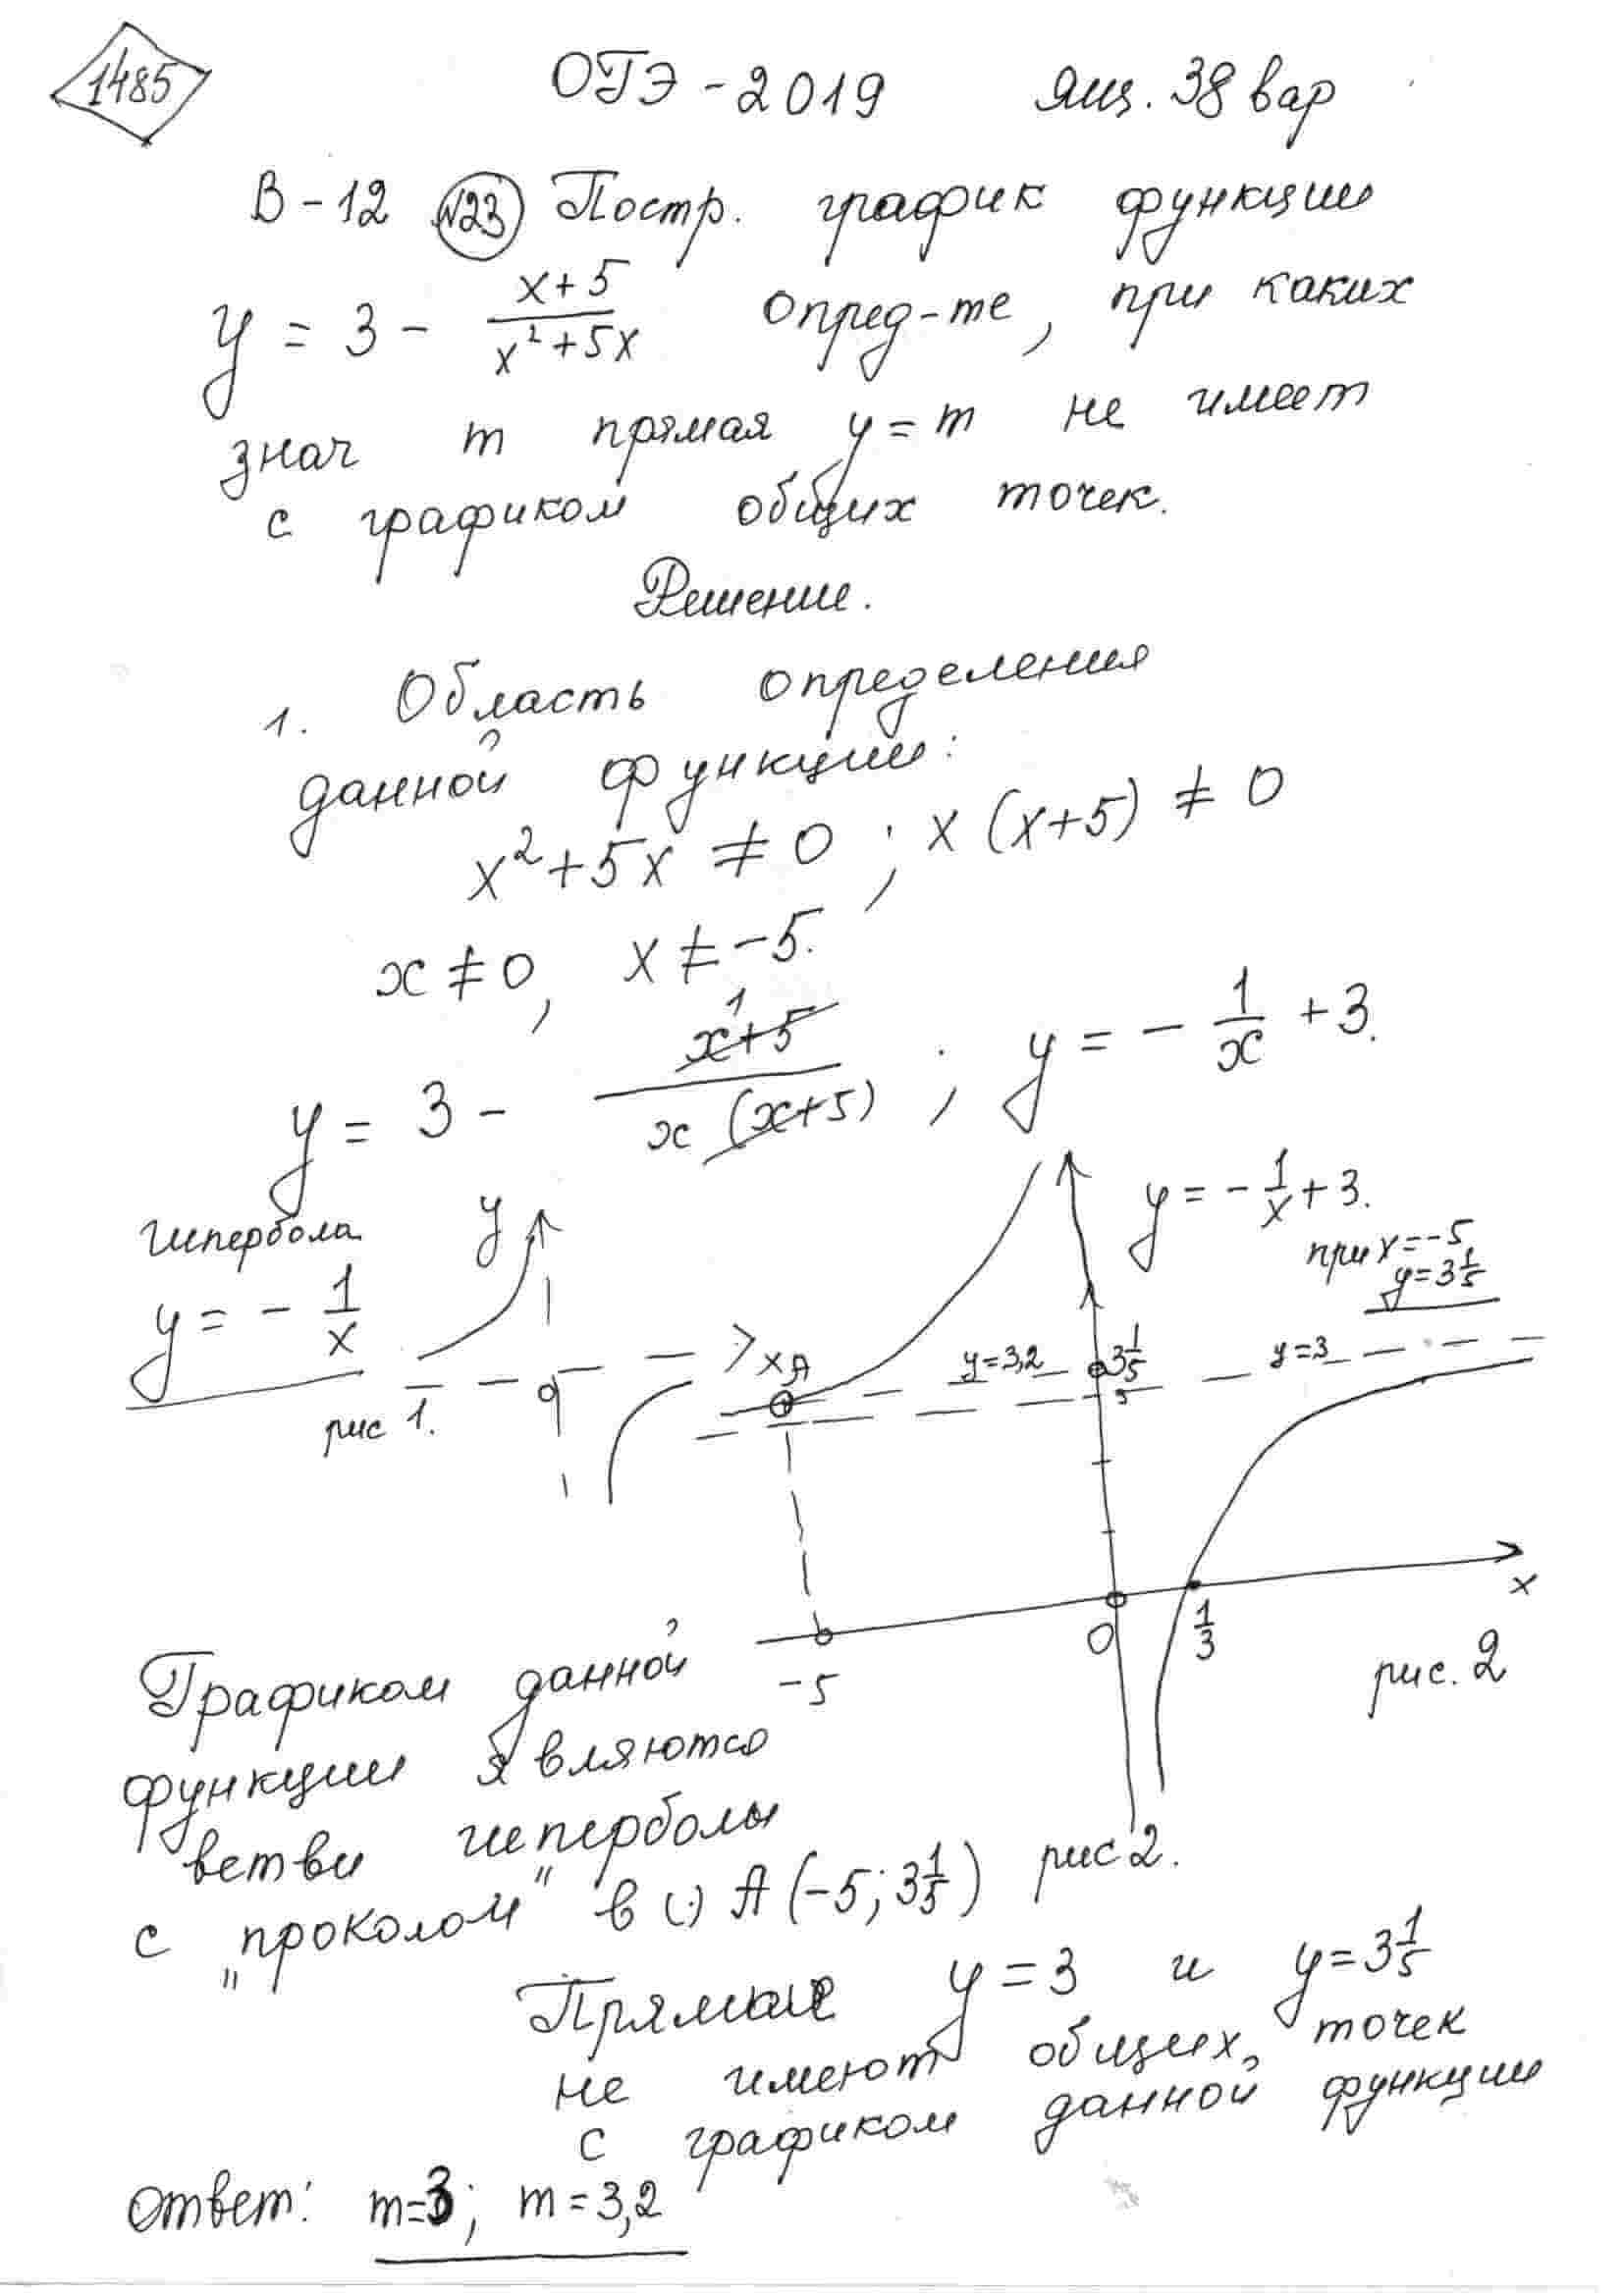 1485
ОГЭ - 2019 Ящ. 38 вар
В - 12 №23 Постр. график функции
y = 3 - (x+5)/(x²+5x) опред-те, при каких
знач m прямая y = m не имеет
с графиком общих точек.
Решение.
1. Область определения
данной функции:
x² + 5x ≠ 0 ; x (x+5) ≠ 0
x ≠ 0, x ≠ -5.
y = 3 - (x+5)/(x (x+5)) 1 ; y = - 1/x + 3.
гипербола
y = - 1/x
y
x
0
рис 1.
y = - 1/x + 3.
при x = -5
y = 3 1/5
A
y = 3,2
3 1/5
y = 3
3
-5
0
1/3
x
рис. 2
Графиком данной
функции являются
ветви гиперболы
с „проколом" в (·) A (-5; 3 1/5) рис 2.
Прямые y = 3 и y = 3 1/5
не имеют общих точек
с графиком данной функции
Ответ: m = 3; m = 3,2